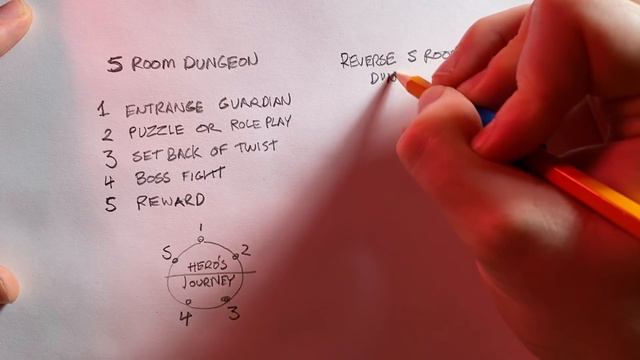 5 ROOM DUNGEON
1 ENTRANGE GUARDIAN
2 PUZZLE OR ROLE PLAY
3 SET BACK OF TWIST
4 BOSS FIGHT
5 REWARD
1
5 2
HERO'S
JOURNEY
4 3
REVERSE 5 ROO
DUN